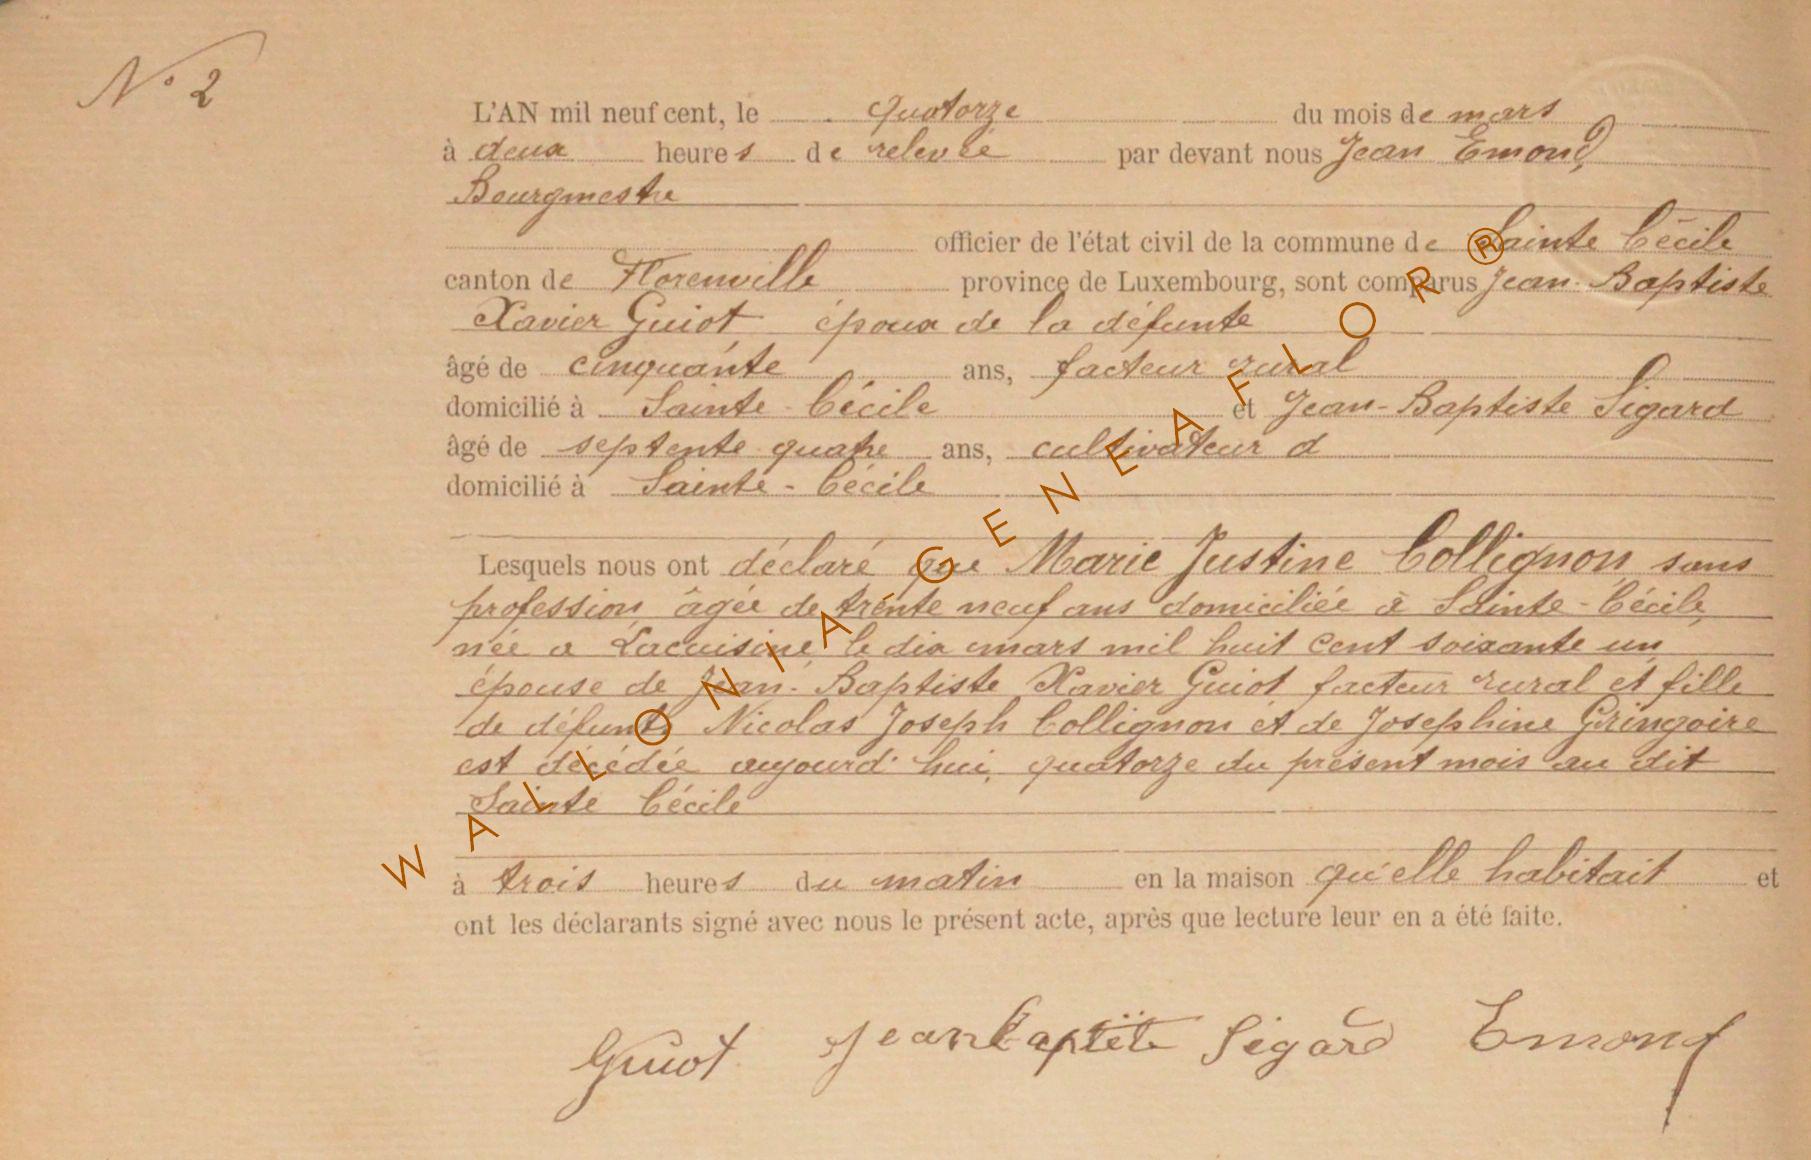 N° 2
L'AN mil neuf cent, le quatorze du mois de mars
à deux heures de relevée par devant nous Jean Emond,
Bourgmestre
officier de l'état civil de la commune de Sainte Cécile
canton de Florenville province de Luxembourg, sont comparus Jean-Baptiste
Xavier Guiot époux de la défunte
âgé de cinquante ans, facteur rural
domicilié à Sainte-Cécile et Jean-Baptiste Sigard
âgé de septente quatre ans, cultivateur d
domicilié à Sainte-Cécile
Lesquels nous ont déclaré que Marie Justine Collignon sans
profession âgée de trente neuf ans domiciliée à Sainte-Cécile,
née a Lacuisine, le dix mars mil huit cent soixante un
épouse de Jean-Baptiste Xavier Guiot facteur rural et fille
de défunts Nicolas Joseph Collignon et de Josephine Gringoire
est décédée aujourd'hui, quatorze du présent mois au dit
Sainte Cécile
à trois heures du matin en la maison qu'elle habitait et
ont les déclarants signé avec nous le présent acte, après que lecture leur en a été faite.
Guiot Jean baptiste Sigard Emond
WALLONIA GENEAFLOR ®